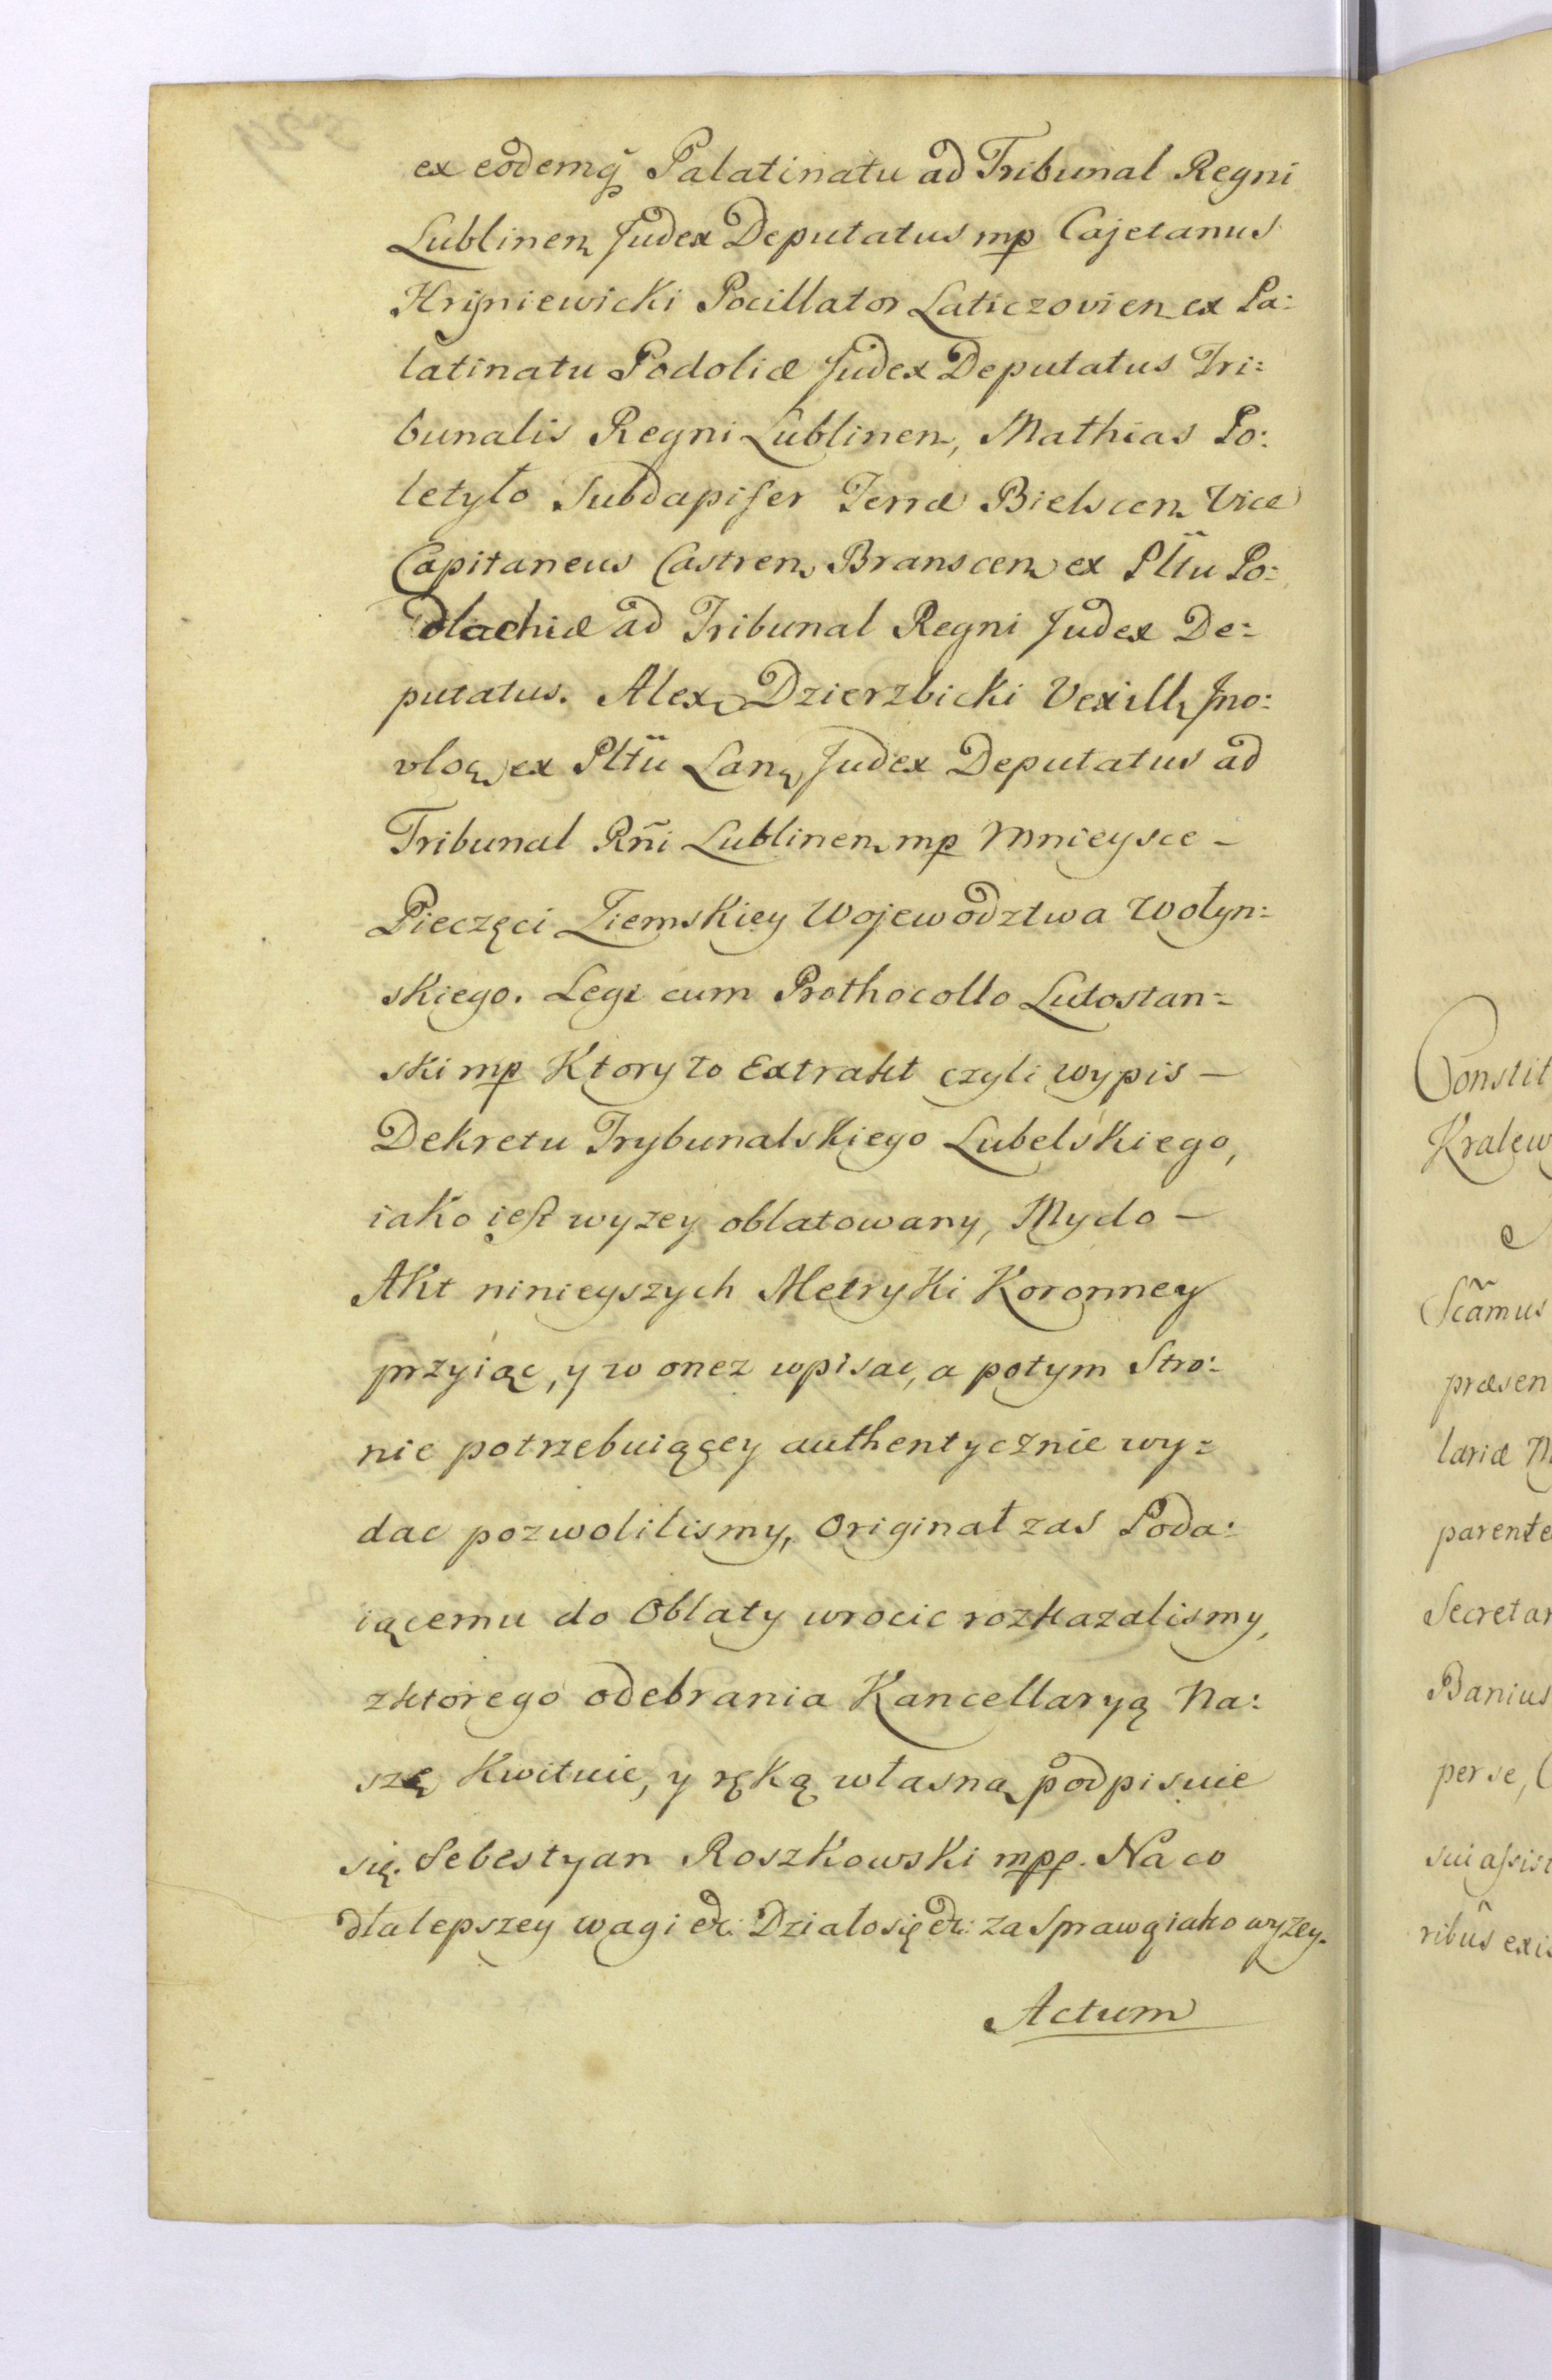 ex eodemq̃ Palatinatu ad Tribunal Regni
Lublinen Judex Deputatus mp Cajetanus
Hryniewicki Pocillator Laticzovien ex Pa:
latinatu Podoliæ Judex Deputatus Tri:
bunalis Regni Lublinen, Mathias Po:
letyło Subdapifer Terræ Bielscen Vice
Capitaneus Castren Branscen ex Plttu Po:
dlachiæ ad Tribunal Regni Judex De:
putatus. Alex Dzierzbicki Vexill Jno:
vloę ex Pltũ Lanę Judex Deputatus ad
Tribunal Rñi Lublinen mp Mnieysce –
Pieczęci Ziemskiey Wojewodztwa Wołyn:
skiego. Legi cum Prothocollo Lutostan:
ski mp Ktory to Extrakt czyli wypis –
Dekretu Trybunalskiego Lubelskiego,
iako iest wyzey oblatowany, My do –
Akt ninieyszych Metryki Koronney
przyiąc, y w onez wpisac, a potym Stro:
nie potrzebuiącey authentycznie wy:
dac pozwolilismy, Originał zas Poda:
iącemu do Oblaty wrocic rozkazalismy,
z ktorego odebrania Kancellaryą Na:
szę Kwituie, y ręką własną podpisuie
się. Sebestyan Roszkowski mpp. Na co
dla lepszey wagi &c: Działo się &c: za Sprawą iako wyzey.
Actum
Constit
Kralew
Scãmus
præsen
lariæ M
parente
Secretar
Banius
per se, C
sui assist
ribũs exis